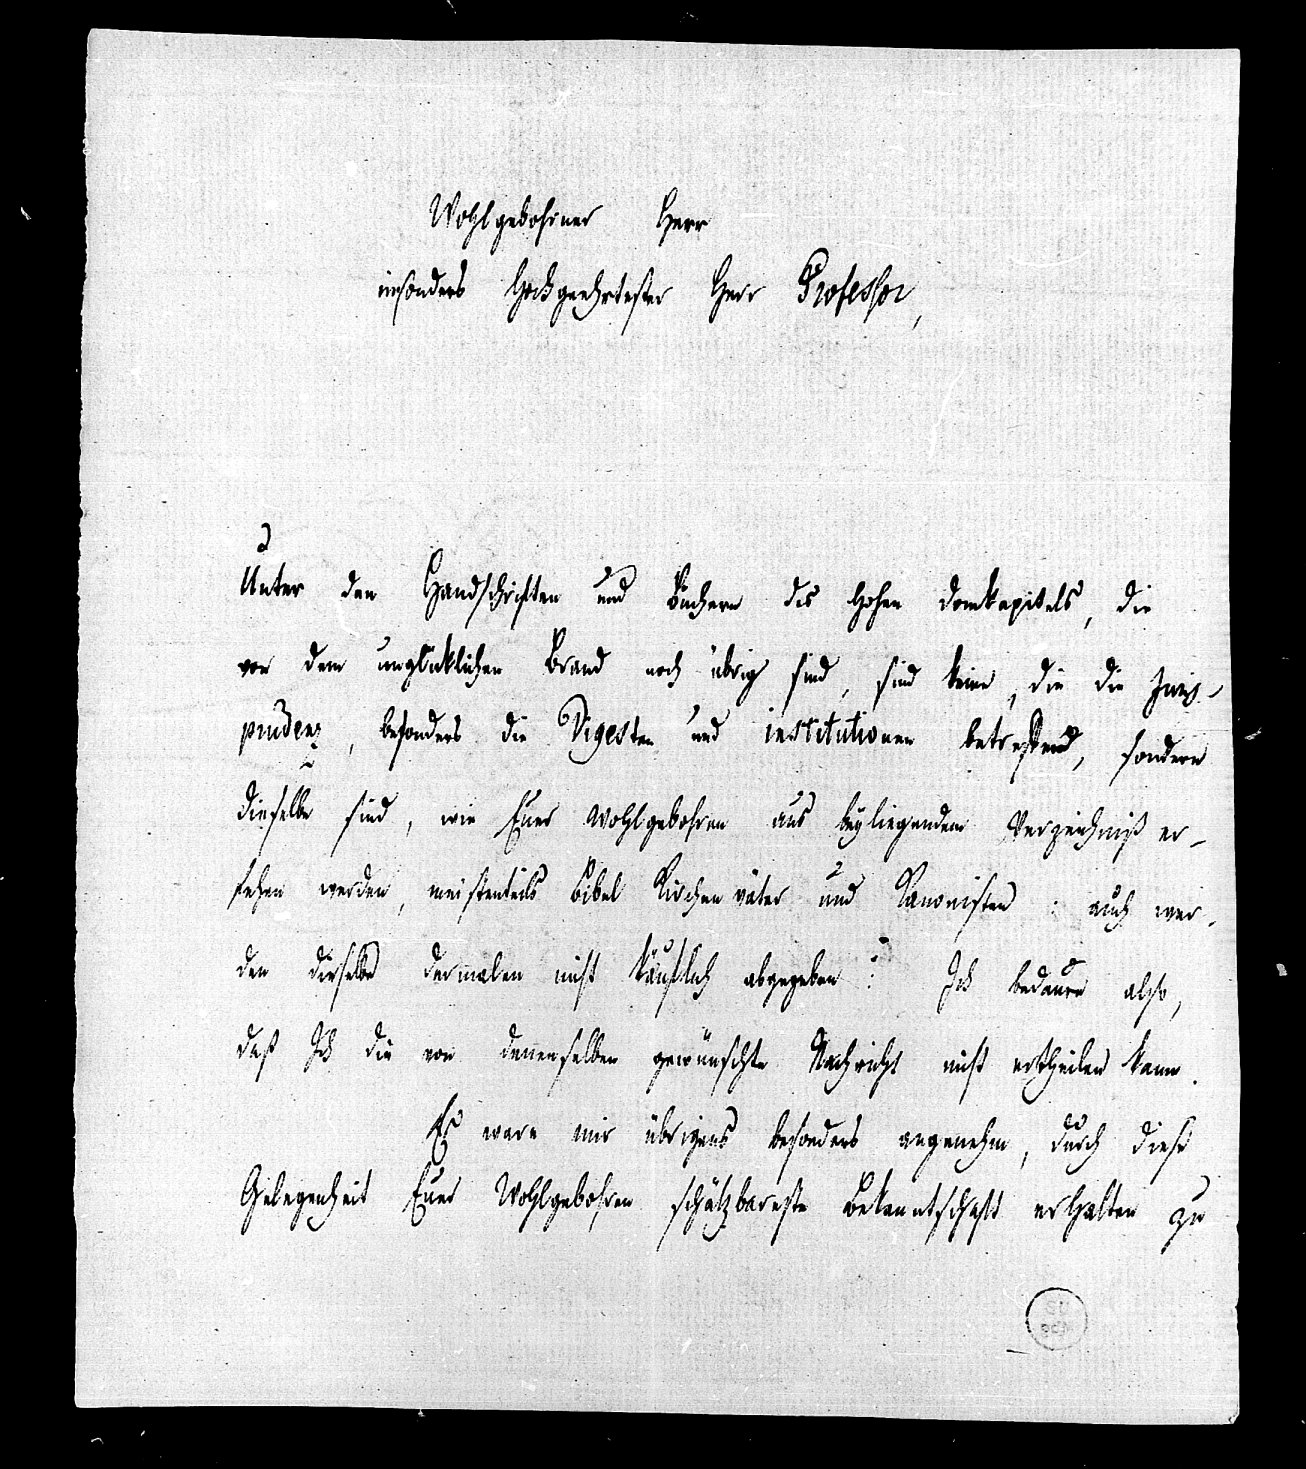 Wohlgebohrner Herr
insonders Hochgeehrtester Herr Professor,
Unter den Handschriften und Büchern des hohen Domkapitels, die
von dem unglücklichen Brand noch übrig sind, sind keine, die die Juris-
prudenz, besonders die Digesten und institutionen betreffend, sondern
dieselbe sind, wie Euer Wohlgebohren aus beyliegendem Verzeichniß er-
sehen werden, meistentheils Bibel Kirchenväter und Canonisten : auch wer-
den dieselbe dermalen nicht käuflich abgegeben : Ich bedaure also,
daß Ich die von denenselben gewünschte Nachricht nicht ertheilen kann.
Es ware mir übrigens besonders angenehm, durch diese
Gelegenheit Euer Wohlgebohren schätzbareste Bekanntschaft erhalten zu